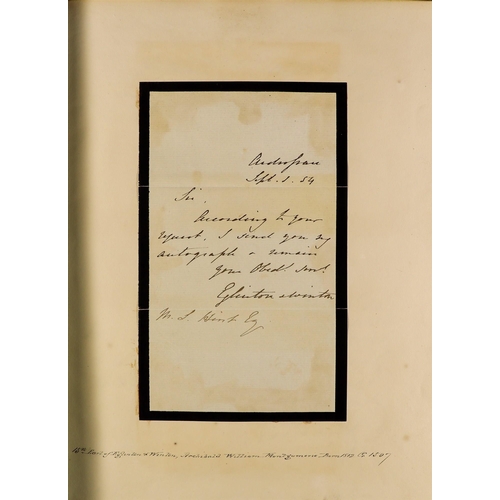 Ardrossan
Sept. 3. 54
Sir,
According to your
request, I send you my
autograph & remain
your Obedt. Servt.
Eglinton & Winton
M. L. Esq
Earl of Eglinton & Winton, Archibald William Montgomerie, Born